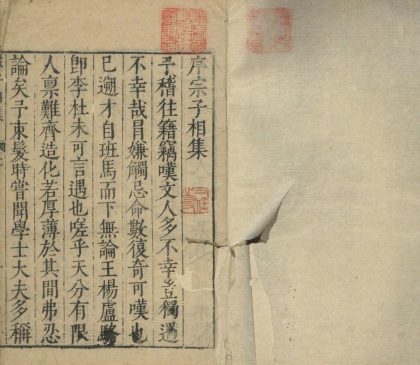 序宗子相集
予稽往籍竊嘆文人多不幸豈獨遇
不幸哉冒嫌觸忌命數復奇可嘆也
已遡才自班馬而下無論王楊盧駱
卽李杜未可言遇也嗟乎天分有限
人稟難齊造化若厚薄於其間弗忍
論矣予束髮時嘗聞學士大夫多稱